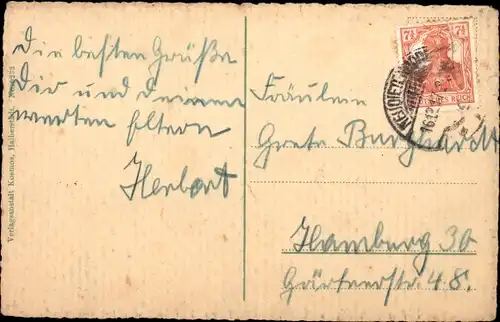 Die besten Grüße
Dir und Deinen
werten Eltern
Herbert
Fräulein
Grete Burghardt
Hamburg 30
Gärtnerstr. 48.
7½ 7½
DEUTSCHES REICH
Verlagsanstalt Kosmos, Halberstadt.